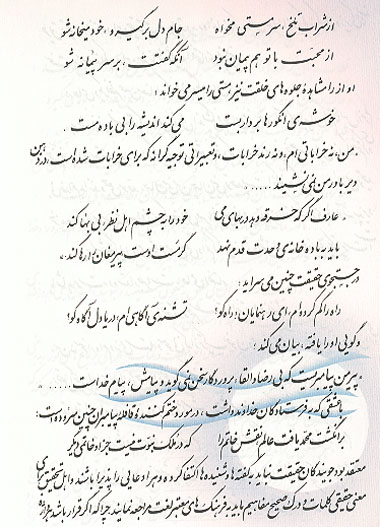 از شراب تلخ، سرمستی مخواه جام دل برگیر و، خود میخانه شو
از محبت با تو هم پیمان نبود آنکه گفتت، بر سر پیمانه شو
او از راه مشاهدۀ جلوه‌های خلقت نیز مستی را میسر می‌خواند:
خوشه‌ی انگورها بردار بست می‌کند اندیشه را بی باده مست.
من، نه خراباتی‌ام، و نه رند خرابات، و تعبیراتی توجیه گرانه که برای خرابات شده است، در ذهن
و باور من نمی‌نشیند .....
عارف اگر که خرقه دهد در بهای می خود را به چشم اهل نظر، بی بها کند
باید به باده خانه‌ی وحدت قدم نهد گر مست اوست پیر مغان را رها کند
در جستجوی حقیقت چنین می‌سراید:
راه را گم کرده‌ام، ای رهنمایان! راه کو؟ تشنه‌ی آگاهی‌ام، دریا دل آگاه کو؟
و گویی او را یافته، بیان می‌کند:
پیر من پیامبریست که بی رضا و القاء پروردگار سخن نمی‌گوید و پیامش، پیام خداست ......
با عشقی که به فرستادگان خداوند داشت، در مورد ختم کنندۀ قافله پیامبران چنین سروده است:
بر انگشت محمد یافت عالم نقش خاتم را که در ملک نبوت نیست جز او خاتمی دیگر
معتقد بود جویندگان حقیقت نباید به گفته‌ها و شنیده‌ها اکتفا کرده و هر ادعایی را پذیرا باشند و اهل تحقیق برای
معنی حقیقی کلمات و درک صحیح مفاهیم باید به فرهنگ‌های معتبر لغت مراجعه نمایند چرا که اگر قرار باشد